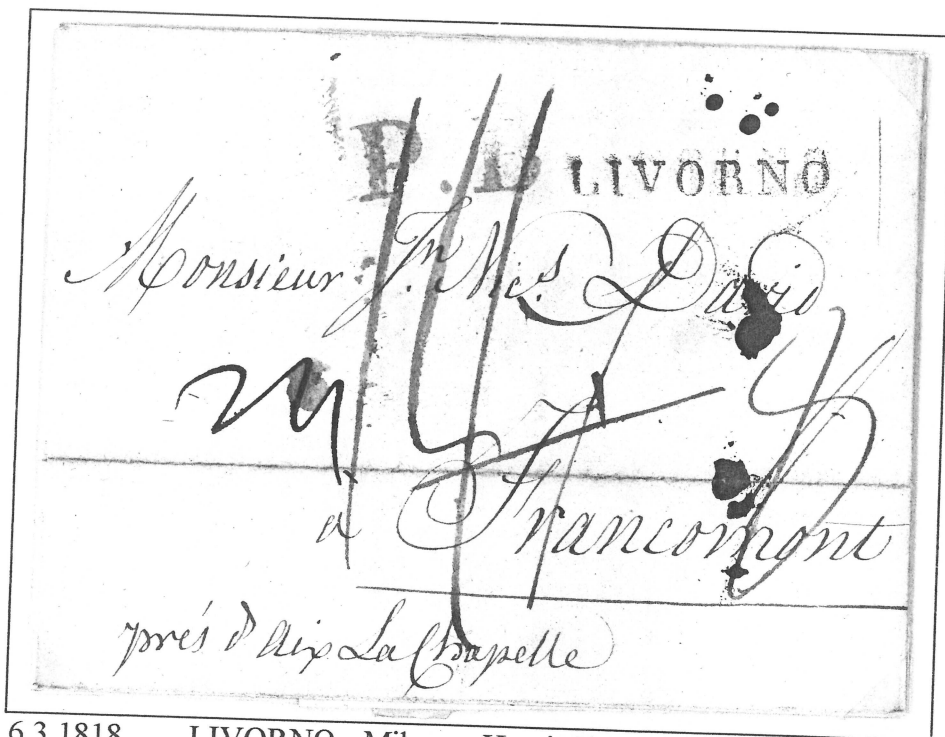 P.D LIVORNO
Monsieur Jn. Nics. David
a Francomont
prés d'Aix La Chapelle
6.3.1818 LIVORNO